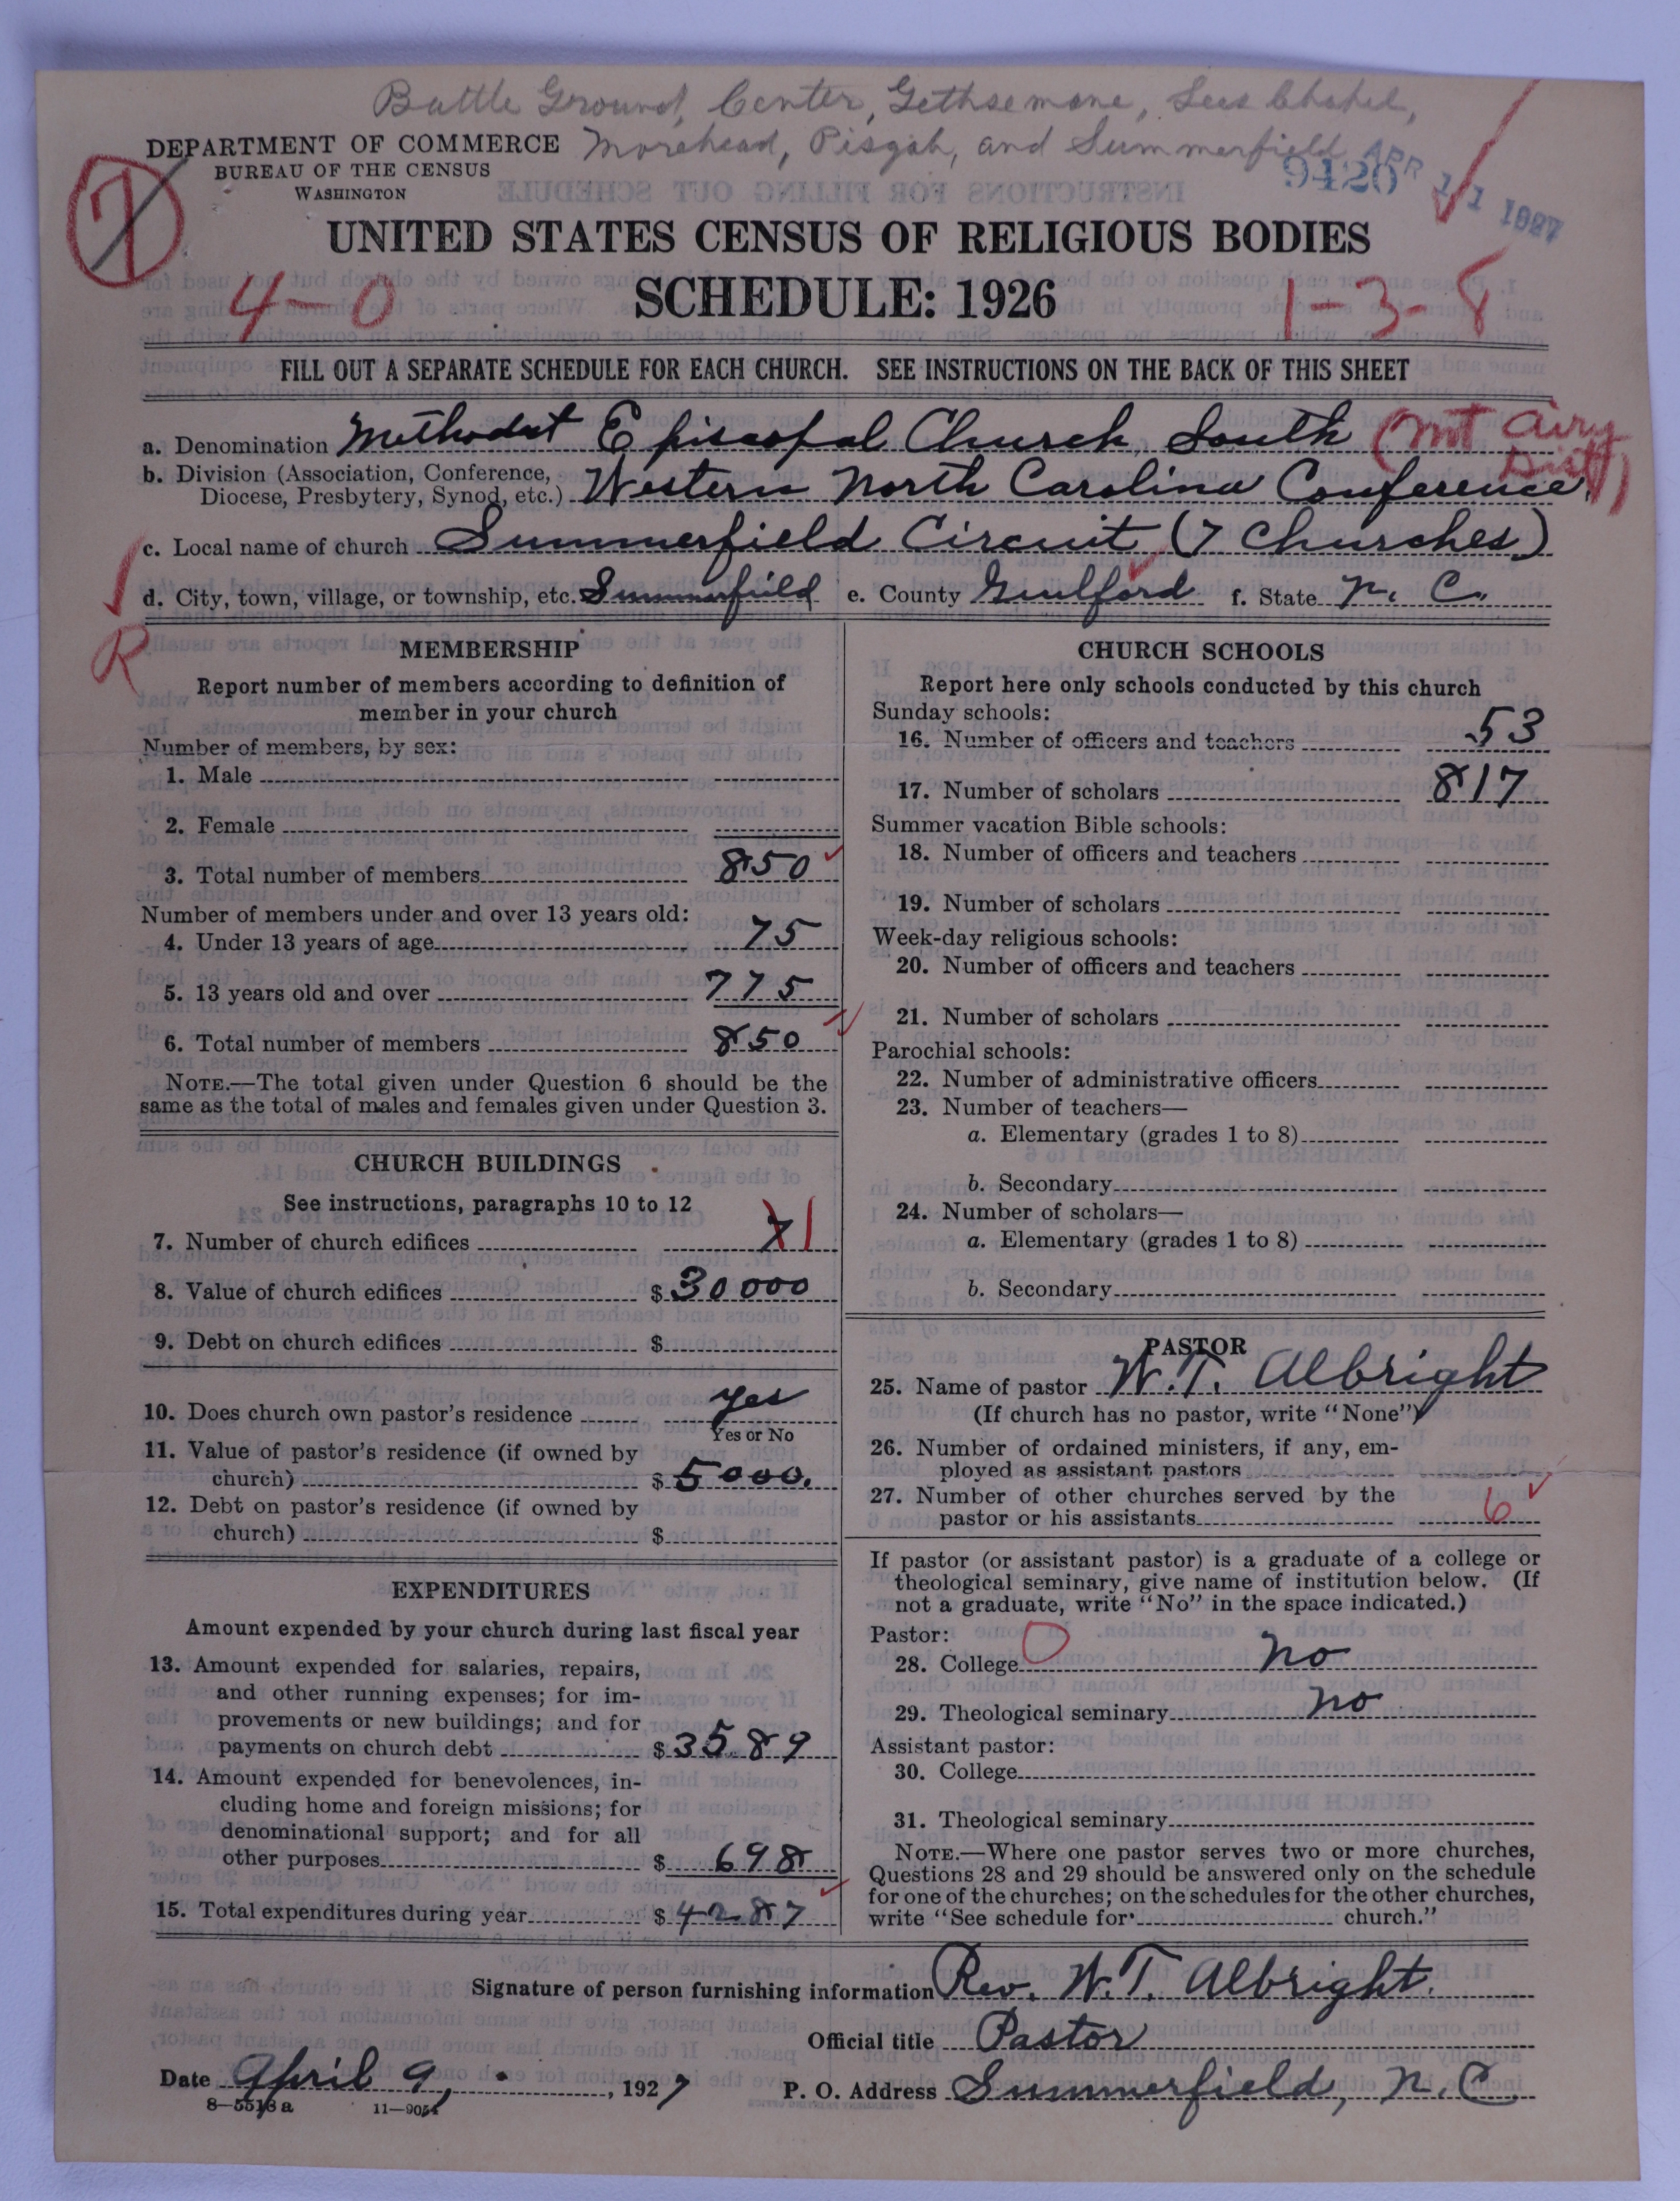 Battle Ground, Center, Gethsemane, Lees Chapel,
Morehead, Pisgah, and Summerfield
DEPARTMENT OF COMMERCE
BUREAU OF THE CENSUS
WASHINGTON
7
9420
APR 11 1927
UNITED STATES CENSUS OF RELIGIOUS BODIES
4-0
SCHEDULE: 1926
1-3-8
FILL OUT A SEPARATE SCHEDULE FOR EACH CHURCH. SEE INSTRUCTIONS ON THE BACK OF THIS SHEET
a. Denomination Methodist Episcopal Church, South (Mt Airy Dist)
b. Division (Association, Conference,
Diocese, Presbytery, Synod, etc.) Western North Carolina Conference.
c. Local name of church Summerfield Circuit (7 Churches)
d. City, town, village, or township, etc. Summerfield e. County Guilford f. State N. C.
R
MEMBERSHIP
Report number of members according to definition of
member in your church
Number of members, by sex:
1. Male
2. Female
3. Total number of members 850
Number of members under and over 13 years old:
4. Under 13 years of age 75
5. 13 years old and over 775
6. Total number of members 850
NOTE.—The total given under Question 6 should be the
same as the total of males and females given under Question 3.
CHURCH BUILDINGS
See instructions, paragraphs 10 to 12
7. Number of church edifices 7 1
8. Value of church edifices $ 30000
9. Debt on church edifices $
10. Does church own pastor's residence yes
Yes or No
11. Value of pastor's residence (if owned by
church) $ 5000.
12. Debt on pastor's residence (if owned by
church) $
EXPENDITURES
Amount expended by your church during last fiscal year
13. Amount expended for salaries, repairs,
and other running expenses; for im-
provements or new buildings; and for
payments on church debt $ 3589
14. Amount expended for benevolences, in-
cluding home and foreign missions; for
denominational support; and for all
other purposes $ 698
15. Total expenditures during year $ 4287
CHURCH SCHOOLS
Report here only schools conducted by this church
Sunday schools:
16. Number of officers and teachers 53
17. Number of scholars 817
Summer vacation Bible schools:
18. Number of officers and teachers
19. Number of scholars
Week-day religious schools:
20. Number of officers and teachers
21. Number of scholars
Parochial schools:
22. Number of administrative officers
23. Number of teachers—
a. Elementary (grades 1 to 8)
b. Secondary
24. Number of scholars—
a. Elementary (grades 1 to 8)
b. Secondary
PASTOR
25. Name of pastor W. T. Albright
(If church has no pastor, write "None")
26. Number of ordained ministers, if any, em-
ployed as assistant pastors
27. Number of other churches served by the
pastor or his assistants 6
If pastor (or assistant pastor) is a graduate of a college or
theological seminary, give name of institution below. (If
not a graduate, write "No" in the space indicated.)
Pastor:
28. College 0 no
29. Theological seminary no
Assistant pastor:
30. College
31. Theological seminary
NOTE.—Where one pastor serves two or more churches,
Questions 28 and 29 should be answered only on the schedule
for one of the churches; on the schedules for the other churches,
write "See schedule for church."
Signature of person furnishing information Rev. W. T. Albright.
Official title Pastor
Date April 9, , 1927 P. O. Address Summerfield, N. C.
8—5513a 11—9054